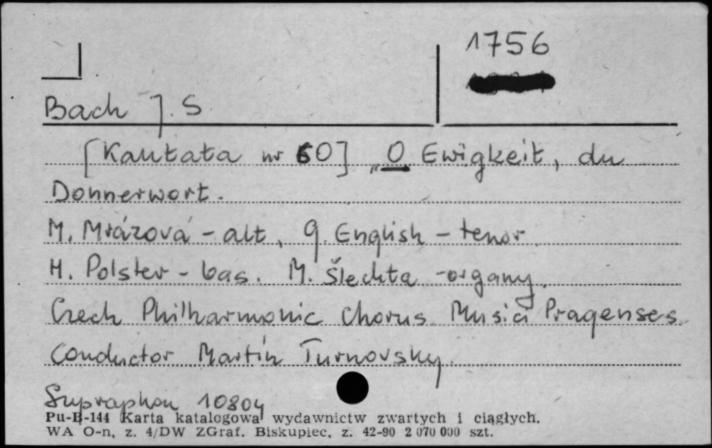 1756
Bach J. S
[Kantata nr 60] „O Ewigkeit, du
Donnerwort.
M. Mrázová - alt, G. English - tenor
H. Polster - bas. M. Šlechta - organy.
Czech Philharmonic Chorus Musici Pragenses.
Conductor Martin Turnovsky.
Supraphon 10804
Pu-B-144 Karta katalogowa wydawnictw zwartych i ciągłych.
WA O-n, z. 4/DW ZGraf. Biskupiec, z. 42-90 2 070 000 szt.